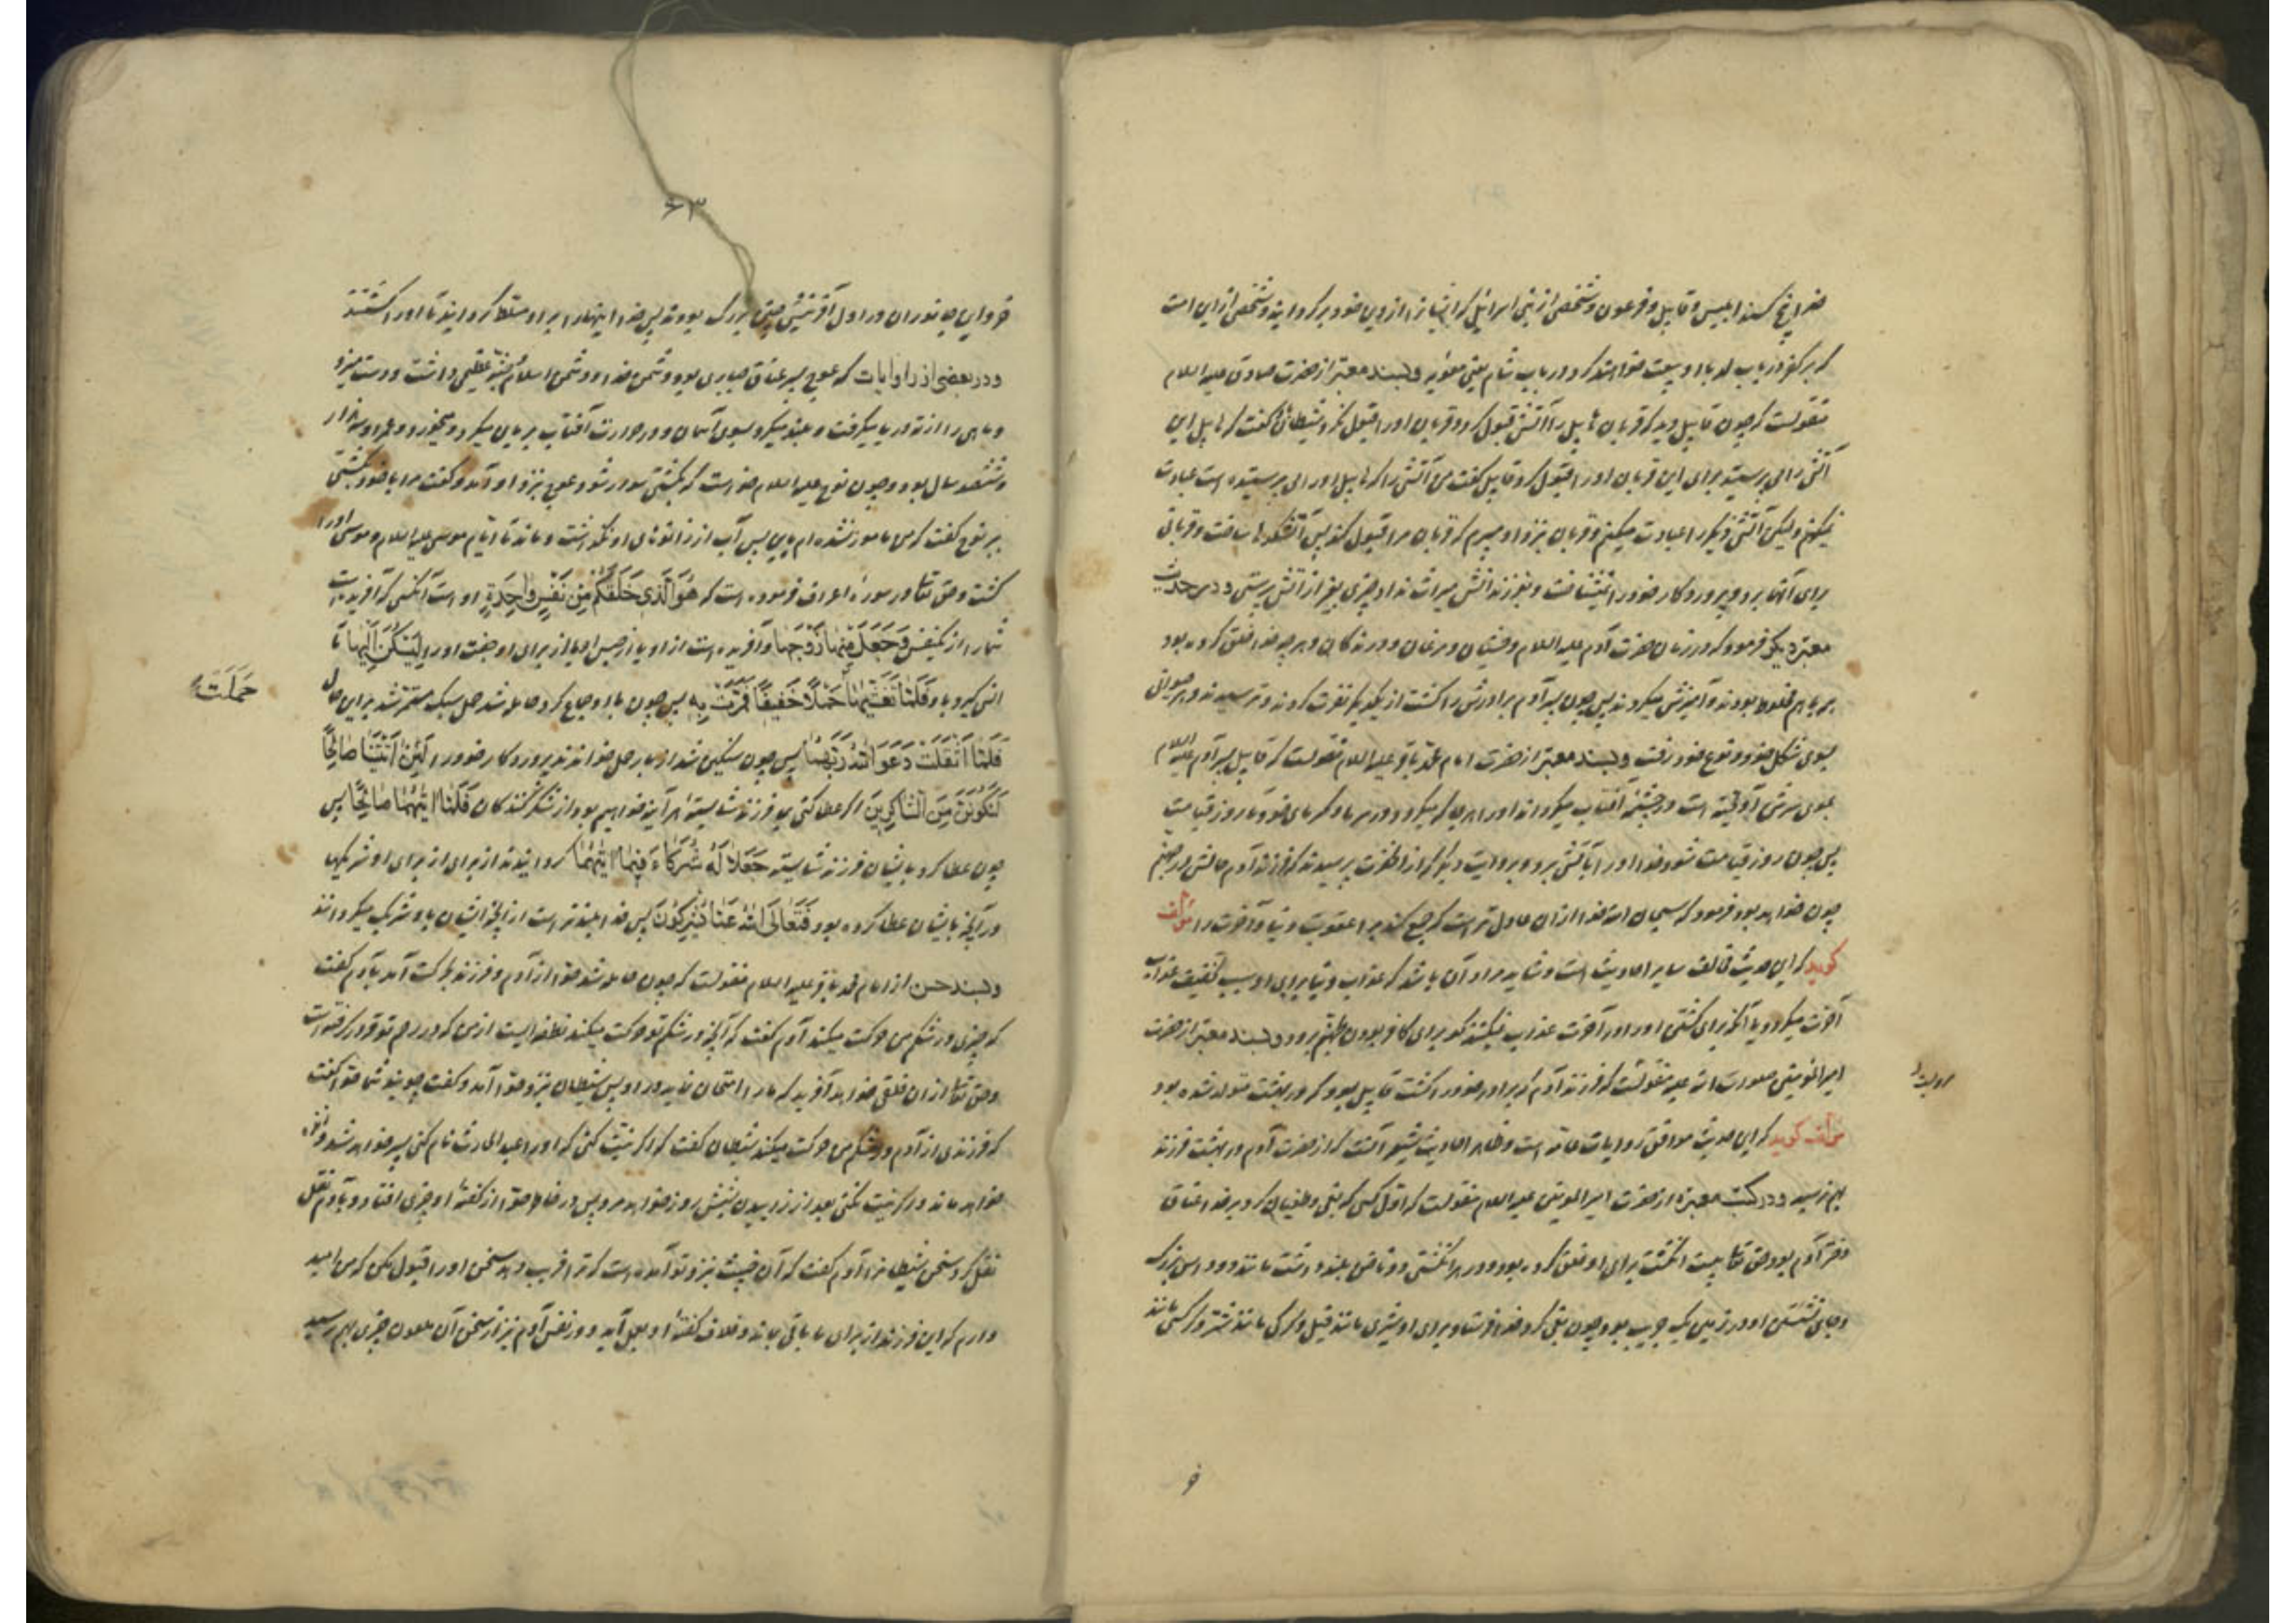 خدا پنج کسند ابلیس و قابیل و فرعون و شخصی از بنی اسرائیل که ایشانرا از دین خود برگردانید و شخصی از این امت
که بر کفر در باب لد با او بیعت خواهند کرد در باب شام یعنی معویه و بسند معتبر از حضرت صادق علیه السلام
منقولست که چون قابیل دید که قربان هابیل را آتش قبول کرد و قربان او را قبول نکرد شیطان گفت که هابیل این
آتش را می پرستید برای این قربان او را قبول کرد قابیل گفت من آتش را که هابیل او را می پرستیده است عبادت
نمیکنم ولیکن آتش دیگر را عبادت میکنم و قربان نزد او میبرم که قربان مرا قبول کند پس آتشکدها ساخت و قربانی
برای آنها برد و پروردگار خود را نمیشناخت و بفرزندانش میراث نداد چیزی بغیر از آتش پرستی و در حدیث
معتبر دیگر فرمود که در زمان حضرت آدم علیه السلام وحشیان و مرغان و درندگان و هر چه خدا خلق کرده بود
همه با هم مخلوط بودند و آمیزش میکردند پس چون پسر آدم برادرش را کشت از یکدیگر نفرت کردند و ترسیدند و هر حیوانی
بسوی شکل خود و نوع خود رفت و بسند معتبر از حضرت امام محمد باقر علیه السلام منقولست که قابیل پسر آدم علیه السلام
بموی سرش آویخته است در چشمه آفتاب میگرداند او را بهر جا که میگردد در سرما و گرمای خود تا روز قیامت
پس چون روز قیامت شود خدا او را بآتش برد و بروایت دیگر از آنحضرت پرسیدند که فرزند آدم حالش در جهنم
چون خواهد بود فرمود که سبحان الله خدا از آن عادل تر است که جمع کند بر او عقوبت دنیا و آخرت را مؤلف
گوید که این حدیث مخالف سایر احادیث است و شاید مراد آن باشد که عذاب دنیا برای او سبب تخفیف عذاب
آخرت میگردد یا آنکه برای کشتن او را در آخرت عذاب نمیکنند گو برای کافر بودن بجهنم برود و بسند معتبر از حضرت
امیرالمومنین صلوات الله علیه منقولست که فرزند آدم که برادر خود را کشت قابیل بود که در بهشت متولد شده بود
مؤلف گوید که این حدیث موافق روایات عامه است و ظاهر احادیث شیعه آنست که از حضرت آدم در بهشت فرزند
بهم نرسید و در کتب معتبره از حضرت امیر المومنین علیه السلام منقولست که اول کسی که بغی و طغیان کرد بر خدا عناق
دختر آدم بود حق تعالی بیست انگشت برای او خلق کرده بود و در هر انگشتی دو ناخن بلند داشت مانند دو داس بزرگ
و جای نشستن او در زمین یک جریب بود چون بغی کرد خدا فرستاد برای او شیری مانند فیل و گرگی مانند شتر و کرکسی مانند
۶۳
خر و این جانوران در اول آفرینش چنین بزرگ بودند پس خدا اینها را بر او مسلط گردانید تا او را کشتند
و در بعضی از روایات که عوج پسر عناق جباری بود دشمن خدا و دشمن اسلام و جثه عظیمی داشت و دست میزد
و ماهی را از ته دریا میگرفت و بلند میکرد بسوی آسمان و در حرارت آفتاب بریان میکرد و میخورد و عمر او سه هزار
و ششصد سال بود و چون نوح علیه السلام خواست که بکشتی سوار شود عوج نزد او آمد و گفت مرا با خود بکشتی
ببر نوح گفت که من مامور نشده ام باین پس آب از زانوهای او نگذشت و ماند تا ایام موسی علیه السلام و موسی او را
کشت و حق تعالی در سوره اعراف فرموده است که هُوَ الَّذی خَلَقَکُمْ مِنْ نَفْسٍ واحِدَةٍ او است آنکسی که آفریده است
شما را از یکنفس وَ جَعَلَ مِنْها زَوْجَها و آفریده است از او یا از جنس او یا از برای او جفت او را لِیَسْکُنَ اِلَیْها تا
انس گیرد با او فَلَمّا تَغَشّیها حَمْلاً خَفیفاً فَمَرَّتْ بِه پس چون با او جماع کرد حامله شد حمل سبک مستمر شد بر این حال
حَمَلَتْ
فَلَمّا اَثْقَلَتْ دَعَوَا اللّهَ رَبَّهُما پس چون سنگین شد از بار حمل خواندند پروردگار خود را لَئِنْ اتَیْتَنا صالِحاً
لَنَکُونَنَّ مِنَ الشّاکِرینَ اگر عطا کنی بما فرزند شایسته هر آینه خواهیم بود از شکر کنندگان فَلَمّا اتیهُما صالِحاً پس
چون عطا کرد بایشان فرزند شایسته جَعَلا لَهُ شُرَکاءَ فیما اتیهُما گردانیدند از برای از برای او شریکها
در آنچه بایشان عطا کرده بود فَتَعالَی اللّهُ عَمّا یُشْرِکُونَ پس خدا بلندتر است از آنچه ایشان با او شریک میگردانند
و بسند حسن از امام محمد باقر علیه السلام منقولست که چون حامله شد حوا از آدم و فرزند بحرکت آمد بآدم گفت
که چیزی در شکم من حرکت میکند آدم گفت که آنچه در شکم تو حرکت میکند نطفه ایست از من که در رحم تو قرار گرفته است
و حق تعالی از آن خلقی خواهد آفرید که ما را امتحان نماید در او پس شیطان نزد حوا آمد و گفت چونید شما حوا گفت
که فرزندی از آدم در شکم من حرکت میکند شیطان گفت که اگر نیت کنی که او را عبد الحارث نام کنی پسر خواهد شد و زنده
خواهد ماند و اگر نیت نکنی بعد از زاییدن بشش روز خواهد مرد پس در خاطر حوا از گفته او چیزی افتاد و بآدم نقل
نقل کرد سخن شیطانرا آدم گفت که آن خبیث نزد تو آمده است که ترا فریب دهد سخن او را قبول مکن که من امید
دارم که این فرزند از برای ما باقی بماند و خلاف گفته او بعمل آید و در نفس آدم نیز از سخن آن ملعون چیزی بهم رسید